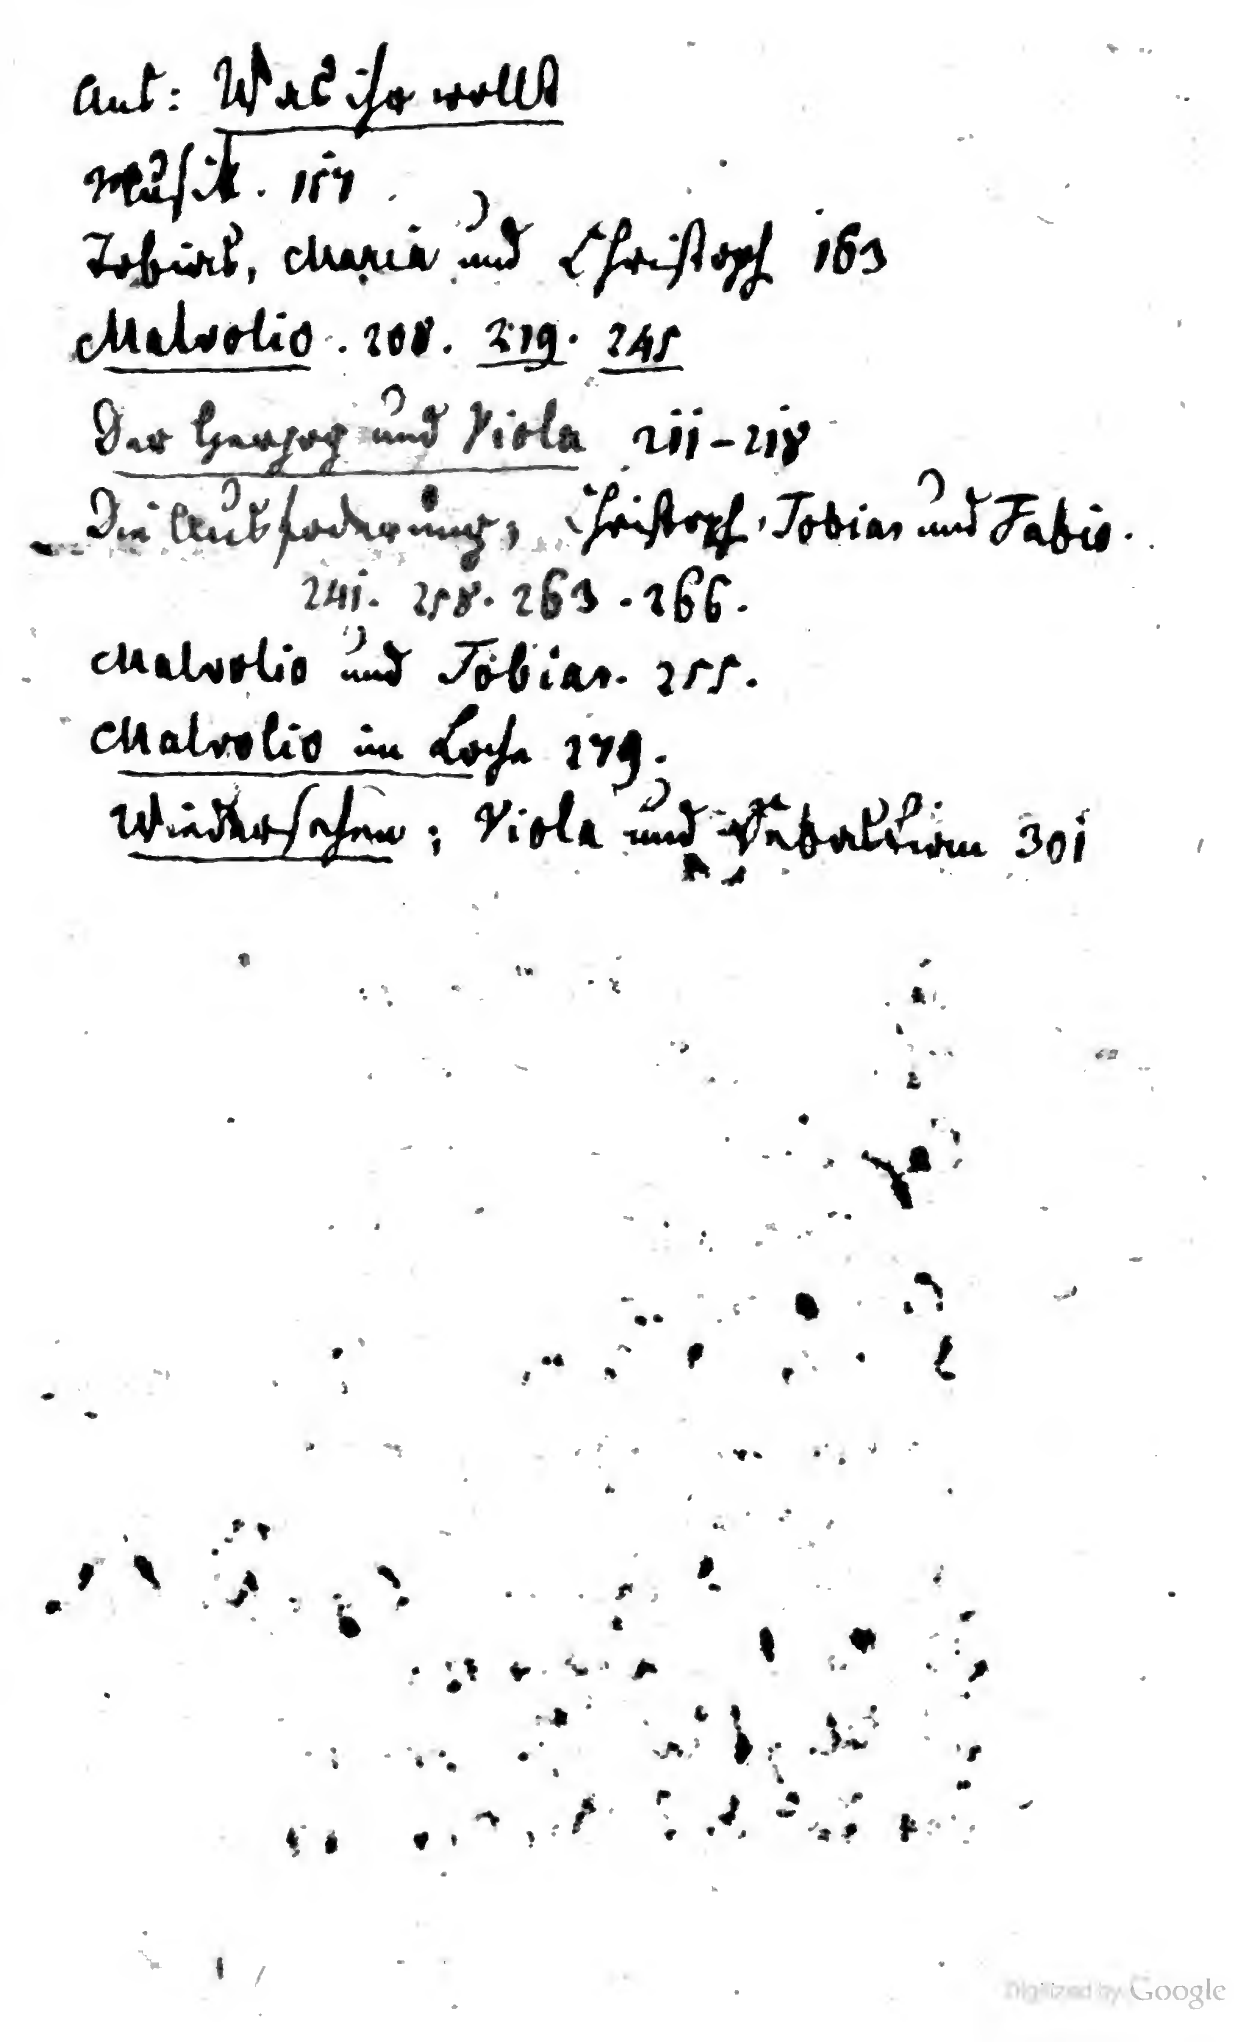 Aus: Was ihr wollt
Musik. 157
Tobias, Maria und Christoph 163
Malvolio. 208. 219. 245
Der Herzog und Viola 211-218
Die Ausforderung; Christoph, Tobias und Fabio.
241. 258. 263. 266.
Malvolio und Tobias. 255.
Malvolio im Loche 279.
Wiedersehen; Viola und Sebastian 301
Digitized by Google